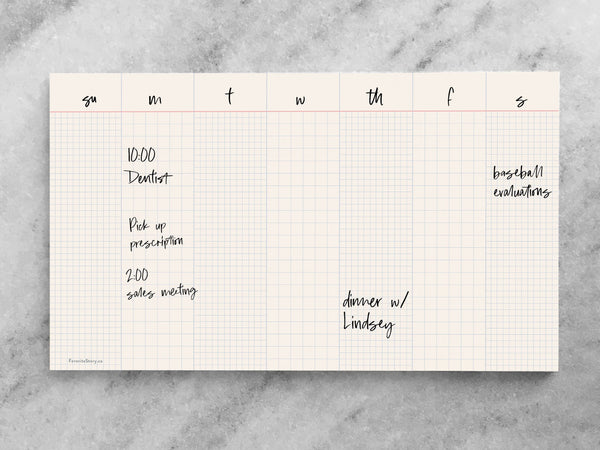 su m t w th f s
10:00
Dentist
Pick up
prescription
2:00
sales meeting
dinner w/
Lindsey
baseball
evaluations
FavoriteStory.co